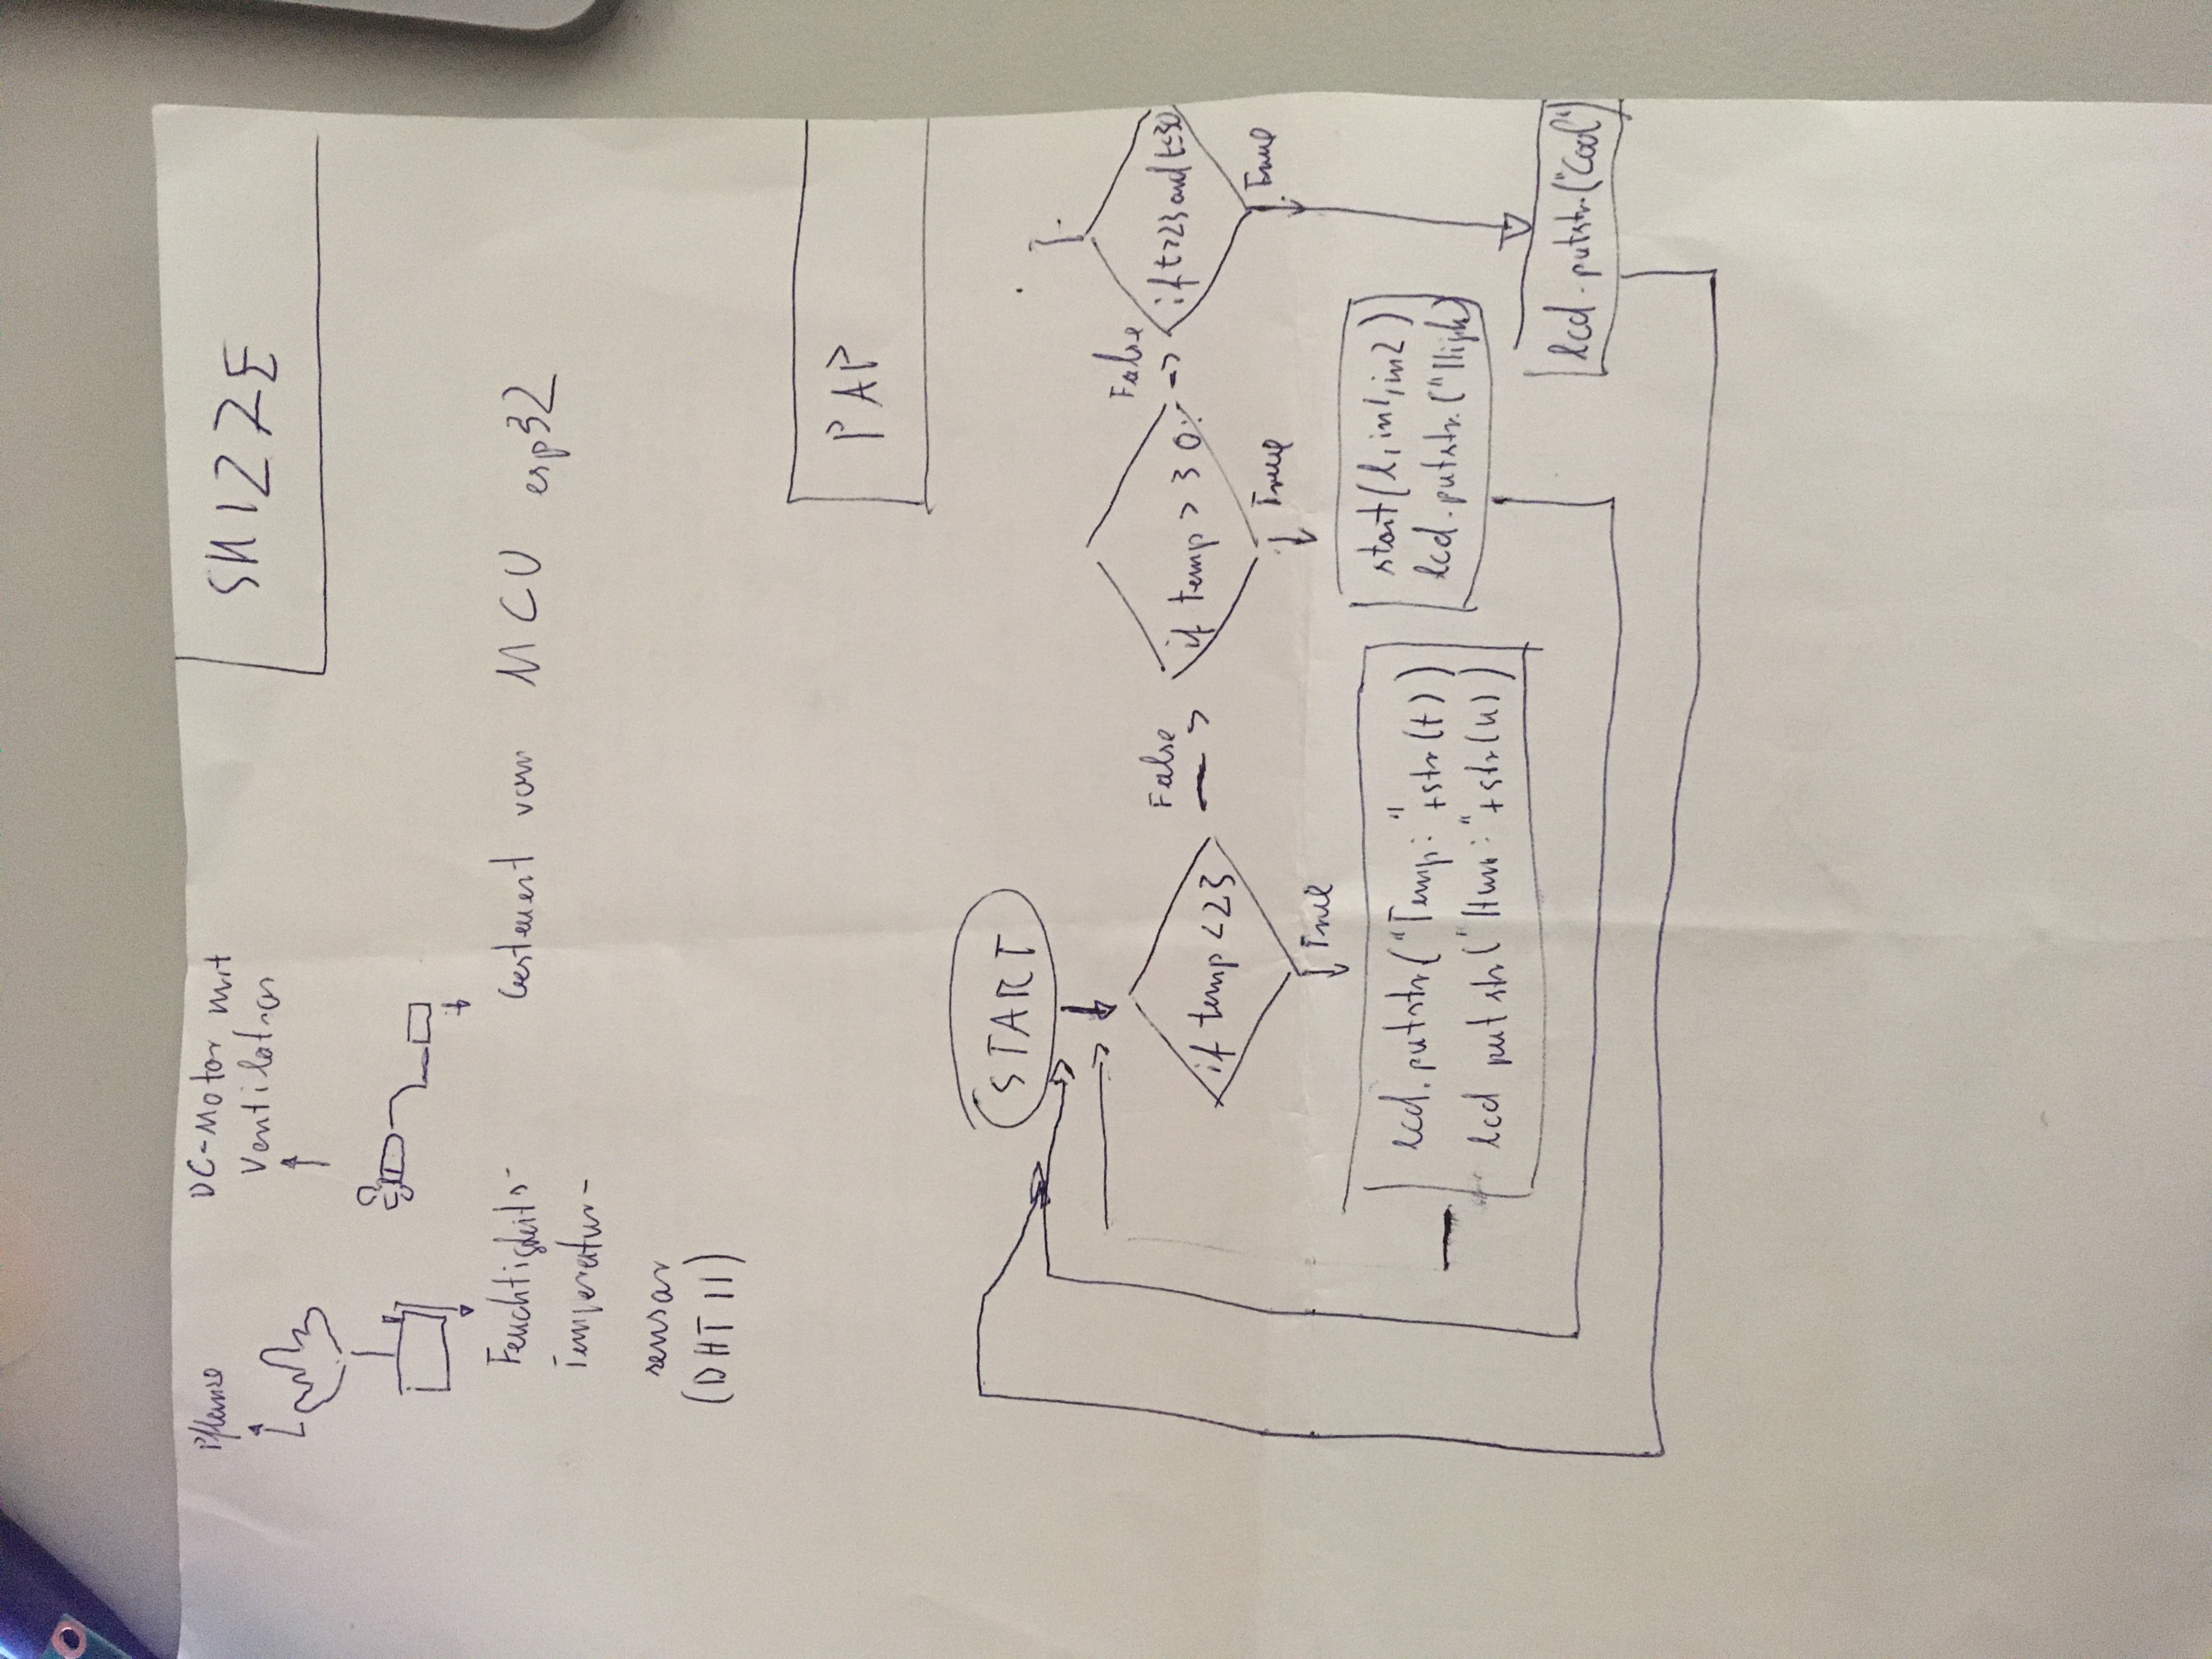 Pflanze
DC-Motor mit
Ventilator
SKIZZE
Feuchtigkeits-
Temperatur-
sensor
(DHT11)
Gesteuert vom MCU esp32
PAP
START
if temp < 23
False
if temp > 30:
False
if t>23 and t≤30
True
True
True
lcd.putstr("Temp:"+str(t))
lcd putstr("Hum:"+str(h))
start(1,in1,in2)
lcd.putstr("High)
lcd.putstr("Cool")